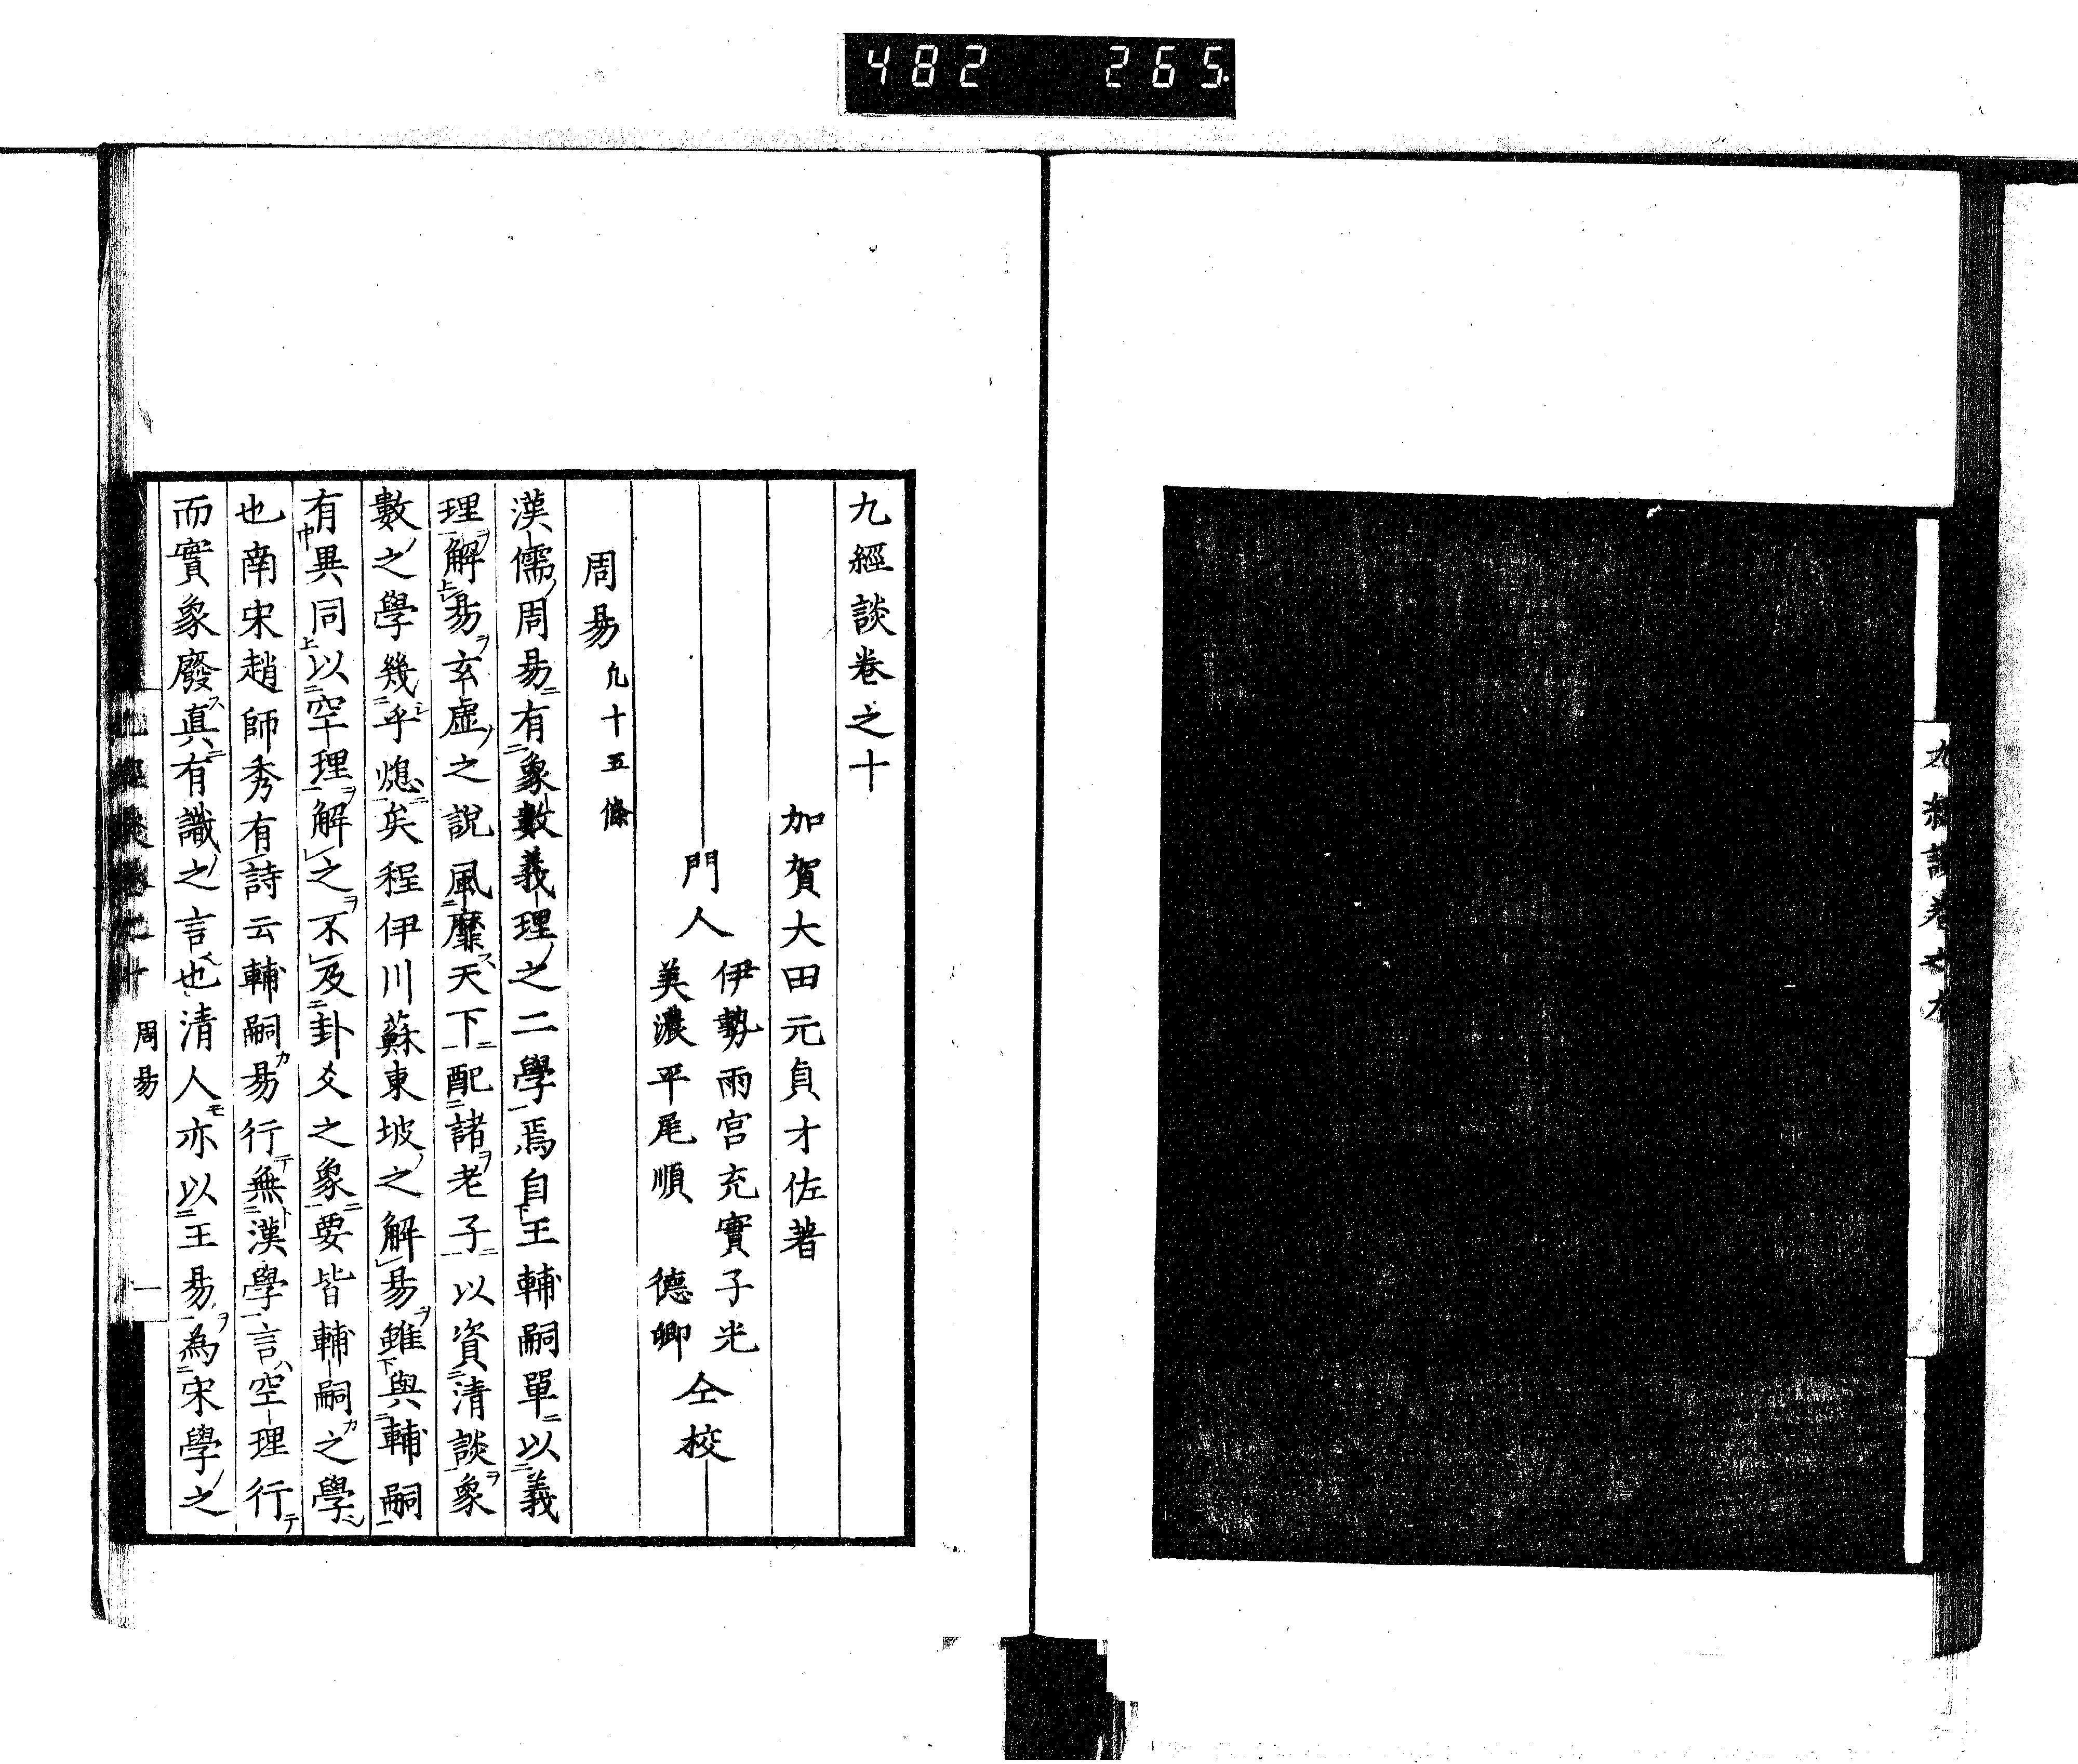 482 265
九經談卷之九
九經談卷之十
加賀大田元貞才佐著
門人
伊勢雨宮充實子光
美濃平尾順 德卿
仝校
周易 九十五條
漢儒ノ周易ニ有象數義理ノ之二學焉自王輔嗣單ニ以義
理ヲ解易ヲ玄虛ノ之說風靡ス天下ニ配諸ヲ老子ニ以資清談ヲ象
數ノ之學幾シ乎熄ニ矣程伊川蘇東坡ノ之解易ヲ雖與輔嗣
有異同以空理ヲ解之ヲ不及卦爻之象ニ要皆輔嗣カ之學
也南宋趙師秀有詩云輔嗣カ易行テ無漢學言ハ空理行テ
而實象廢ス真ニ有識ノ之言也清人モ亦以王易ヲ為宋學ノ之
九經談卷之十 周易 一